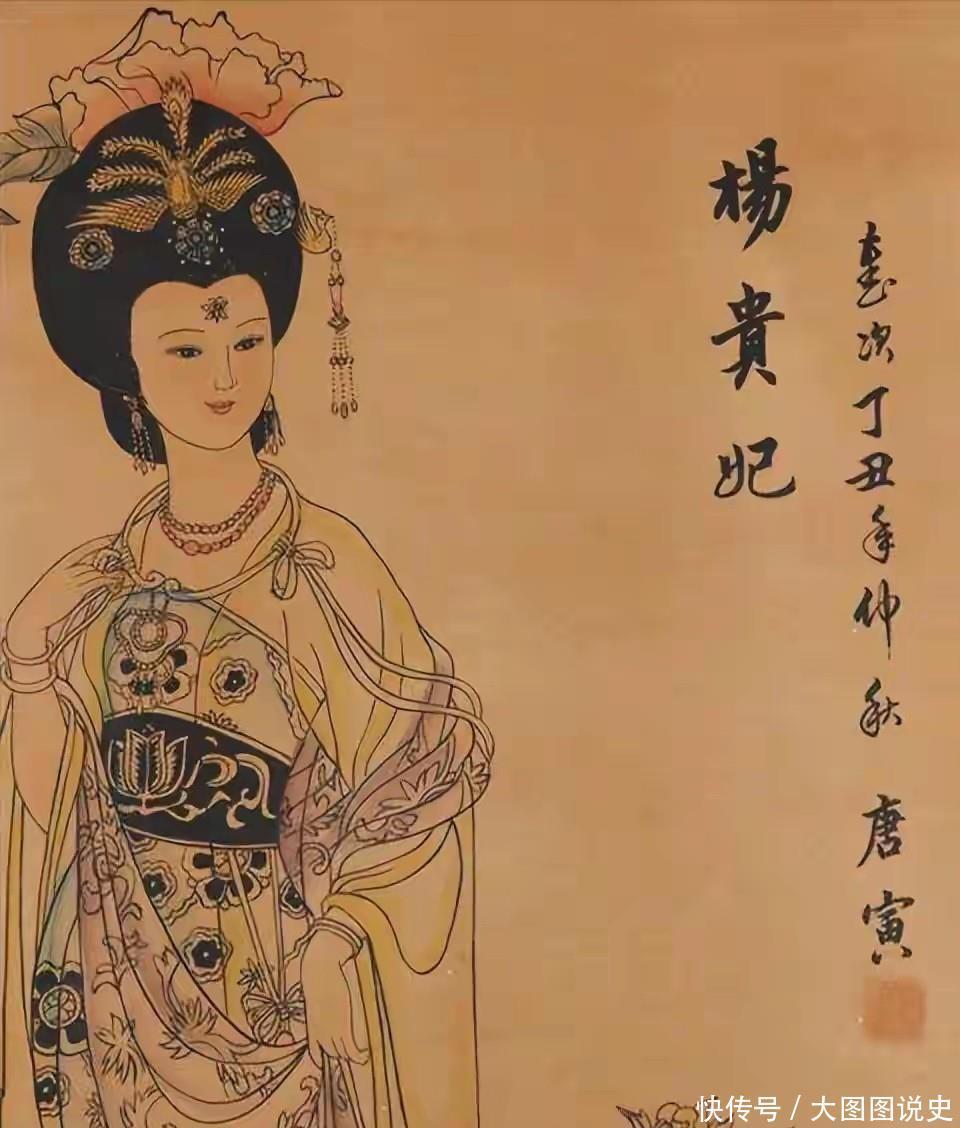 楊貴妃
歲次丁丑年仲秋 唐寅
快传号 / 大图图说史